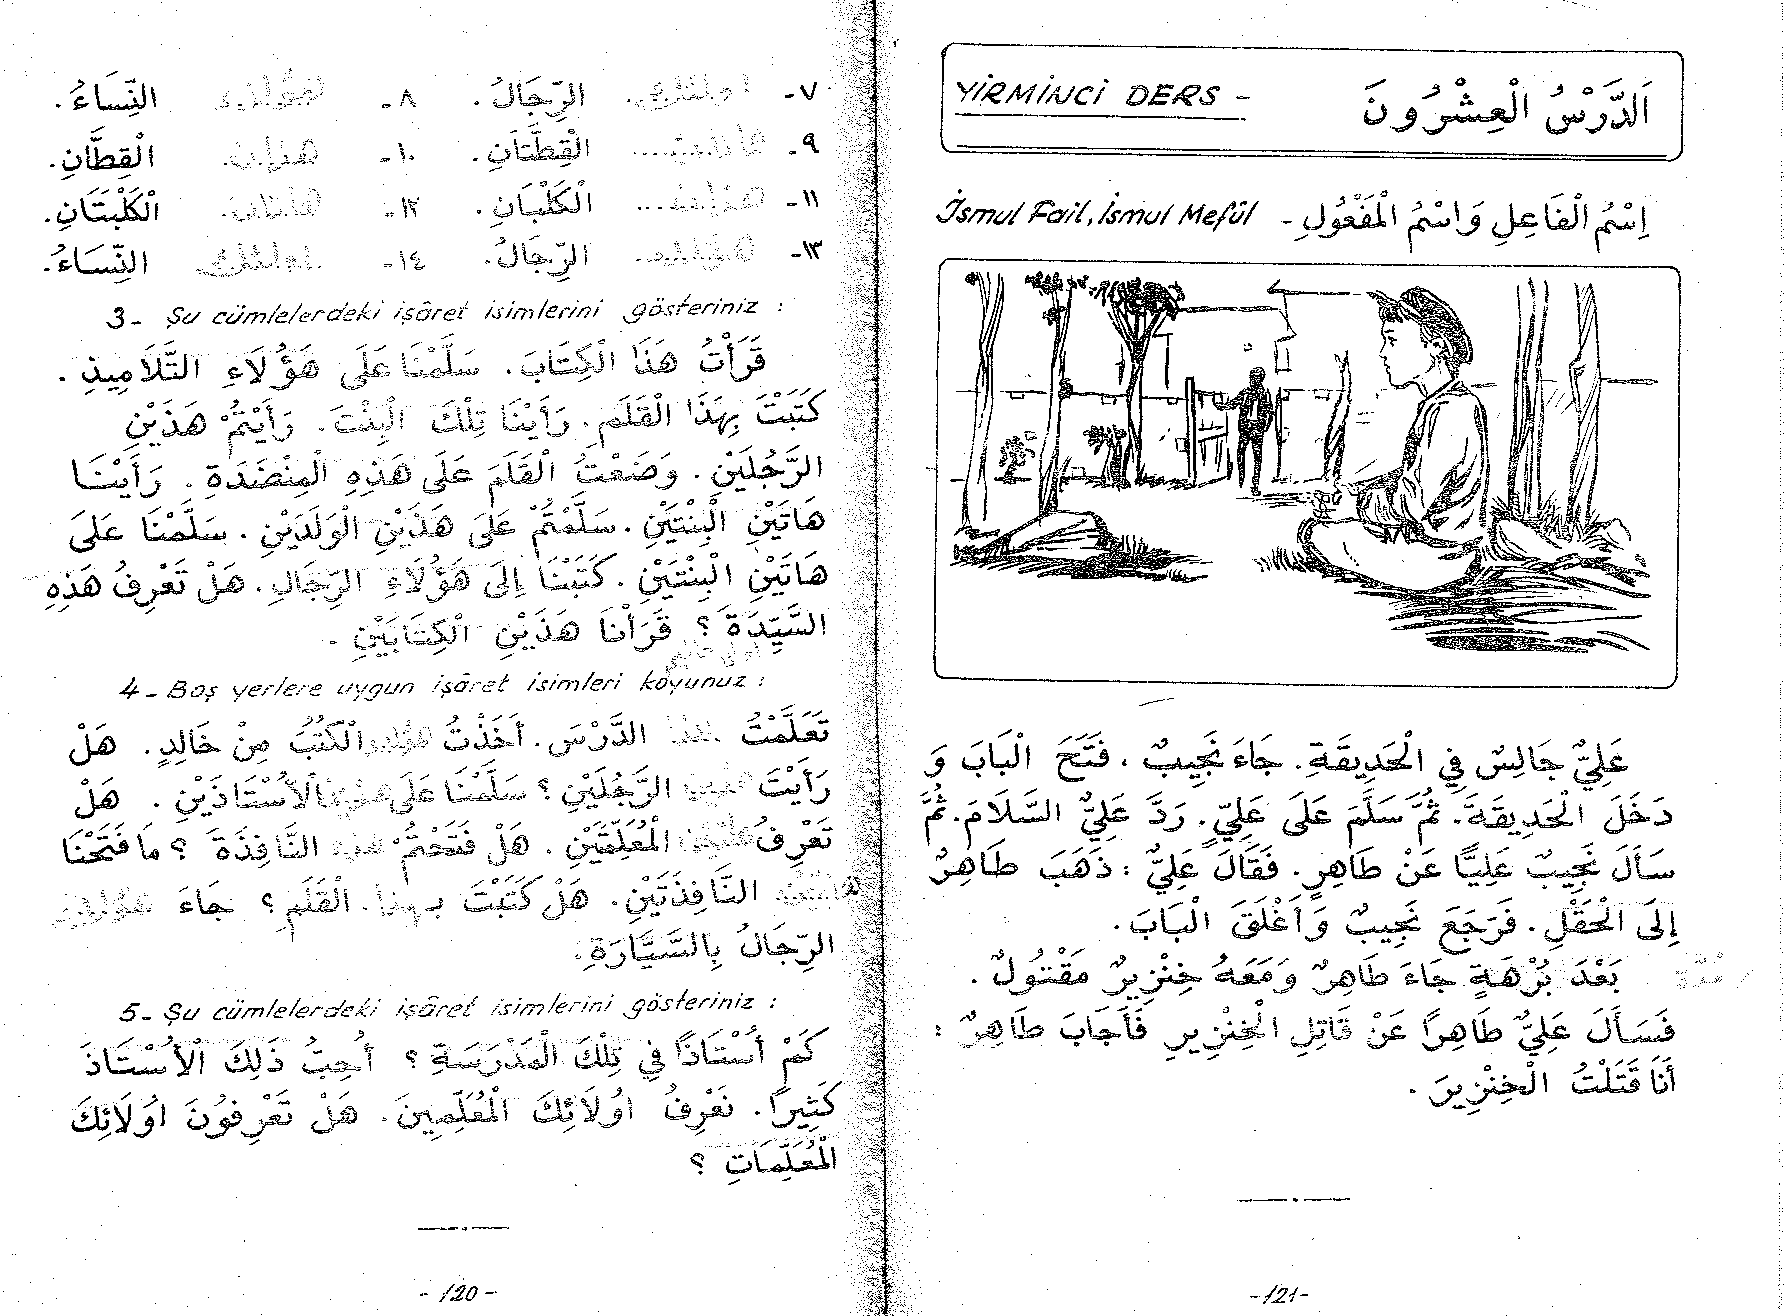 ٧- الرِّجَالُ. ٨- النِّسَاءُ.
٩- الْقِطَّتَانِ. ١٠- هذان الْقِطَّانِ.
١١- الْكَلْبَانِ. ١٢- الْكَلْبَتَانِ.
١٣- الرِّجَالُ. ١٤- النِّسَاءُ.
3- Şu cümlelerdeki işâret isimlerini gösteriniz :
قَرَأْتُ هَذَا الْكِتَابَ. سَلَّمْنَا عَلَى هَؤُلَاءِ التَّلَامِيذِ.
كَتَبْتَ بِهَذَا الْقَلَمِ. رَأَيْنَا تِلْكَ الْبِنْتَ. رَأَيْتُمْ هَذَيْنِ
الرَّجُلَيْنِ. وَضَعْتُ الْقَلَمَ عَلَى هَذِهِ الْمِنْضَدَةِ. رَأَيْنَا
هَاتَيْنِ الْبِنْتَيْنِ. سَلَّمْتُمْ عَلَى هَذَيْنِ الْوَلَدَيْنِ. سَلَّمْنَا عَلَى
هَاتَيْنِ الْبِنْتَيْنِ. كَتَبْنَا إِلَى هَؤُلَاءِ الرِّجَالِ. هَلْ تَعْرِفُ هَذِهِ
السَّيِّدَةَ ؟ قَرَأْنَا هَذَيْنِ الْكِتَابَيْنِ.
4- Boş yerlere uygun işâret isimleri koyunuz :
تَعَلَّمْتُ هذا الدَّرْسَ. أَخَذْتُ الْكُتُبَ مِنْ خَالِدٍ. هَلْ
رَأَيْتَ الرَّجُلَيْنِ ؟ سَلَّمْنَا عَلَى الْأُسْتَاذَيْنِ. هَلْ
تَعْرِفُ الْمُعَلِّمَتَيْنِ. هَلْ فَتَحْتُمْ هذه النَّافِذَةَ ؟ مَا فَتَحْنَا
هاتين النَّافِذَتَيْنِ. هَلْ كَتَبْتَ بـهذا الْقَلَمِ ؟ جَاءَ هؤلاء
الرِّجَالُ بِالسَّيَّارَةِ.
5- Şu cümlelerdeki işâret isimlerini gösteriniz :
كَمْ أُسْتَاذًا فِي تِلْكَ الْمَدْرَسَةِ ؟ أُحِبُّ ذَلِكَ الْأُسْتَاذَ
كَثِيرًا. نَعْرِفُ اُولَائِكَ الْمُعَلِّمِينَ. هَلْ تَعْرِفُونَ اُولَائِكَ
الْمُعَلِّمَاتِ ؟
-120-
YİRMİNCİ DERS - اَلدَّرْسُ الْعِشْرُونَ
İsmul Fail, İsmul Mefûl - اِسْمُ الْفَاعِلِ وَاسْمُ الْمَفْعُولِ
عَلِيٌّ جَالِسٌ فِي الْحَدِيقَةِ. جَاءَ نَجِيبٌ، فَتَحَ الْبَابَ وَ
دَخَلَ الْحَدِيقَةَ. ثُمَّ سَلَّمَ عَلَى عَلِيٍّ. رَدَّ عَلِيٌّ السَّلَامَ. ثُمَّ
سَأَلَ نَجِيبٌ عَلِيًّا عَنْ طَاهِرٍ. فَقَالَ عَلِيٌّ : ذَهَبَ طَاهِرٌ
إِلَى الْحَقْلِ. فَرَجَعَ نَجِيبٌ وَأَغْلَقَ الْبَابَ.
بَعْدَ بُرْهَةٍ جَاءَ طَاهِرٌ وَمَعَهُ خِنْزِيرٌ مَقْتُولٌ.
فَسَأَلَ عَلِيٌّ طَاهِرًا عَنْ قَاتِلِ الْخِنْزِيرِ فَأَجَابَ طَاهِرٌ :
أَنَا قَتَلْتُ الْخِنْزِيرَ.
-121-